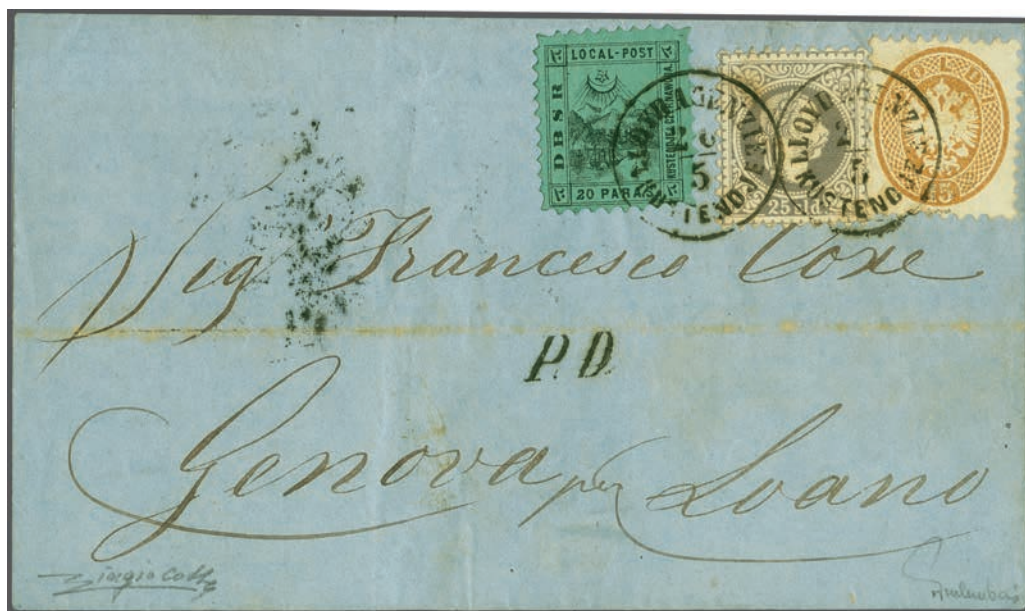 LOCAL-POST
DBSR
KUSTENDJE & CZERNAWODA
20 PARAS
LLOYD AGENZIE
KUSTENDJE
25 sld
LLOYD AGENZIE
KUSTENDJE
SOLD
15
Sig Francesco
P.D.
Genova per Loano